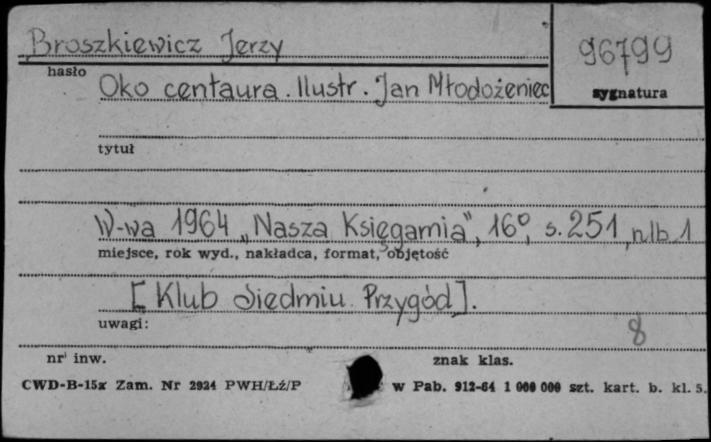 Broszkiewicz Jerzy
96799
hasło
sygnatura
Oko centaura. Ilustr. Jan Młodożeniec
tytuł
W-wa 1964 „Nasza Księgarnia", 16°, s. 251, nlb. 1
miejsce, rok wyd., nakładca, format, objętość
[Klub Siedmiu Przygód].
uwagi:
8
nr inw.
znak klas.
CWD-B-15x Zam. Nr 2924 PWH/Łź/P
w Pab. 912-64 1 000 000 szt. kart. b. kl. 5.